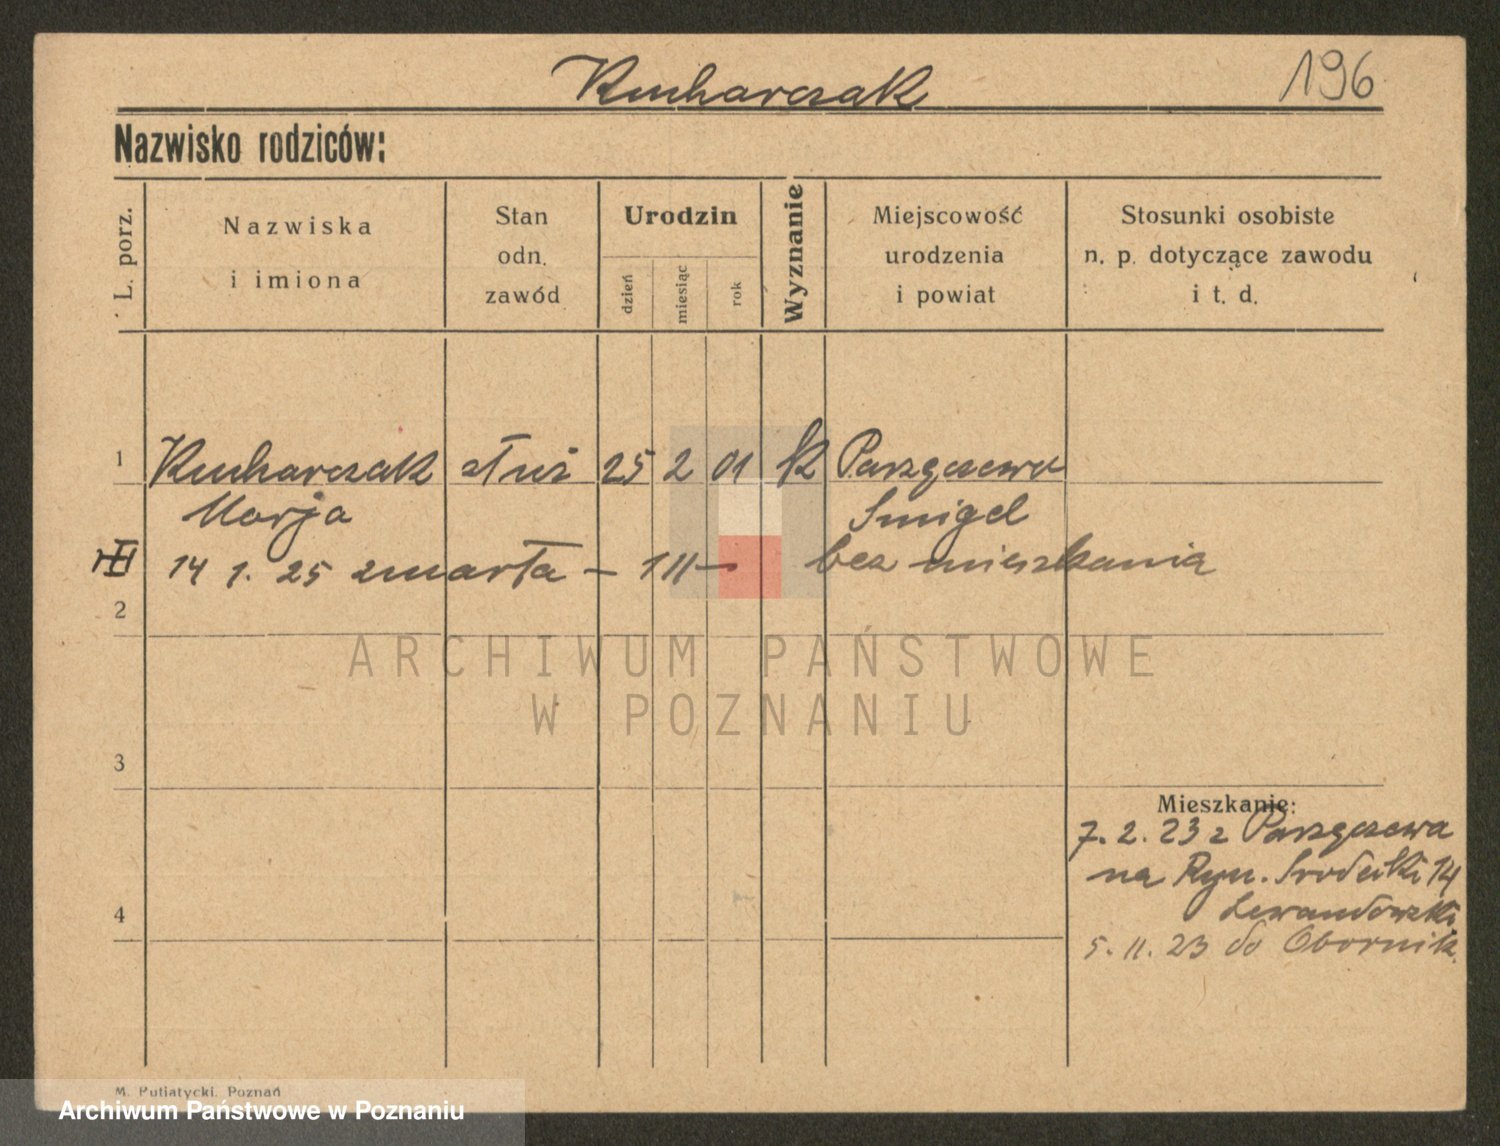 Kucharczak 196
Nazwisko rodziców:
L. porz.
Nazwiska
i imiona
Stan
odn.
zawód
Urodzin
dzień
miesiąc
rok
Wyznanie
Miejscowość
urodzenia
i powiat
Stosunki osobiste
n. p. dotyczące zawodu
i t. d.
1 Kucharczak służ 25 2 01 k Parzęczewo
Marja Smigel
14 1. 25 zmarła – 111 – bez mieszkania
2
3
4
Mieszkanie:
7. 2. 23 z Parzęczewa
na Ryn. Srodecki 14
Lewandowski
5. 11. 23 do Obornik.
M. Putiatycki. Poznań
ARCHIWUM PAŃSTWOWE
W POZNANIU
Archiwum Państwowe w Poznaniu